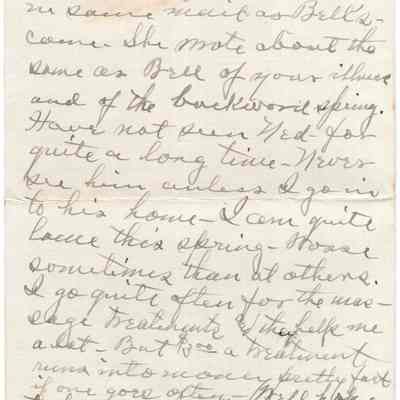 in same mail as Bell's -
came - She wrote about the
same as Bell of your illness
and of the backword spring.
Have not seen Ned - for
quite a long time - Never
see him unless I go in
to his home - I am quite
lame this spring - Worse
sometimes than at others.
I go quite often for the mas -
sage treatments & they helps me
a lot - But 3.00 a treatment
runs into money pretty fast
if one goes often -